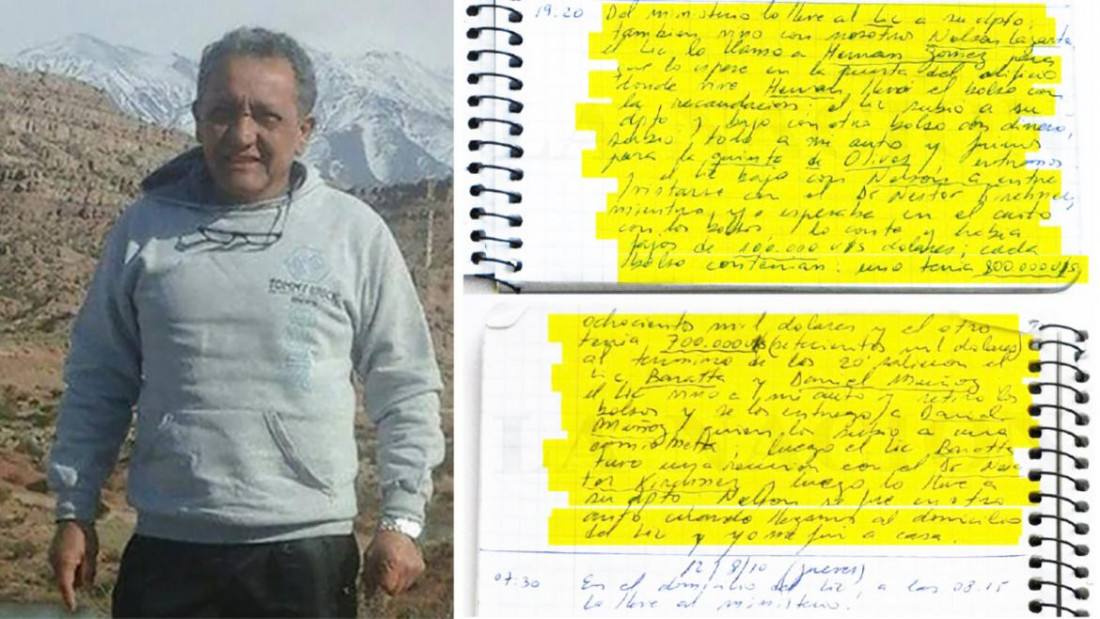 TOMMY
19.20 Del ministerio lo lleve al Lic a su dpto,
tambien vino con nosotros Nelson Lazarte,
el Lic lo llamo a Hernan Gomez para
que lo espere en la puerta del edificio
donde vive Hernan, llevó el bolso con
la recaudacion; el Lic subió a su
dpto y bajo con otro bolso con dinero,
todo a mi auto y fuimos
para la quinta de Olivos, entramos
y el Lic bajo con Nelson a entre
vistarse con el Dr Nestor Kirchner,
mientras yo esperaba en el auto
con los bolsos, lo conte y habia
fajos de 100.000 U$S dolares; cada
bolso contenian: uno tenia 800.000 U$S
ochocientos mil dolares y el otro
tenia 700.000 U$S (setecientos mil dolares)
al termino de los 20' salieron el
Lic Baratta y Daniel Muñoz
el Lic vino a mi auto y retiro los
bolsos y se los entrego a Daniel
Muñoz, quien los subio a una
camioneta; luego el Lic Baratta
tuvo una reunion con el Dr Nes-
tor Kirchner y luego lo lleve a
su dpto Nelson se fue en otro
auto cuando llegamos al domicilio
del Lic y yo me fui a casa.
12/8/10 (jueves)
07:30 En el domicilio del Lic, a las 08.15
lo lleve al ministerio.